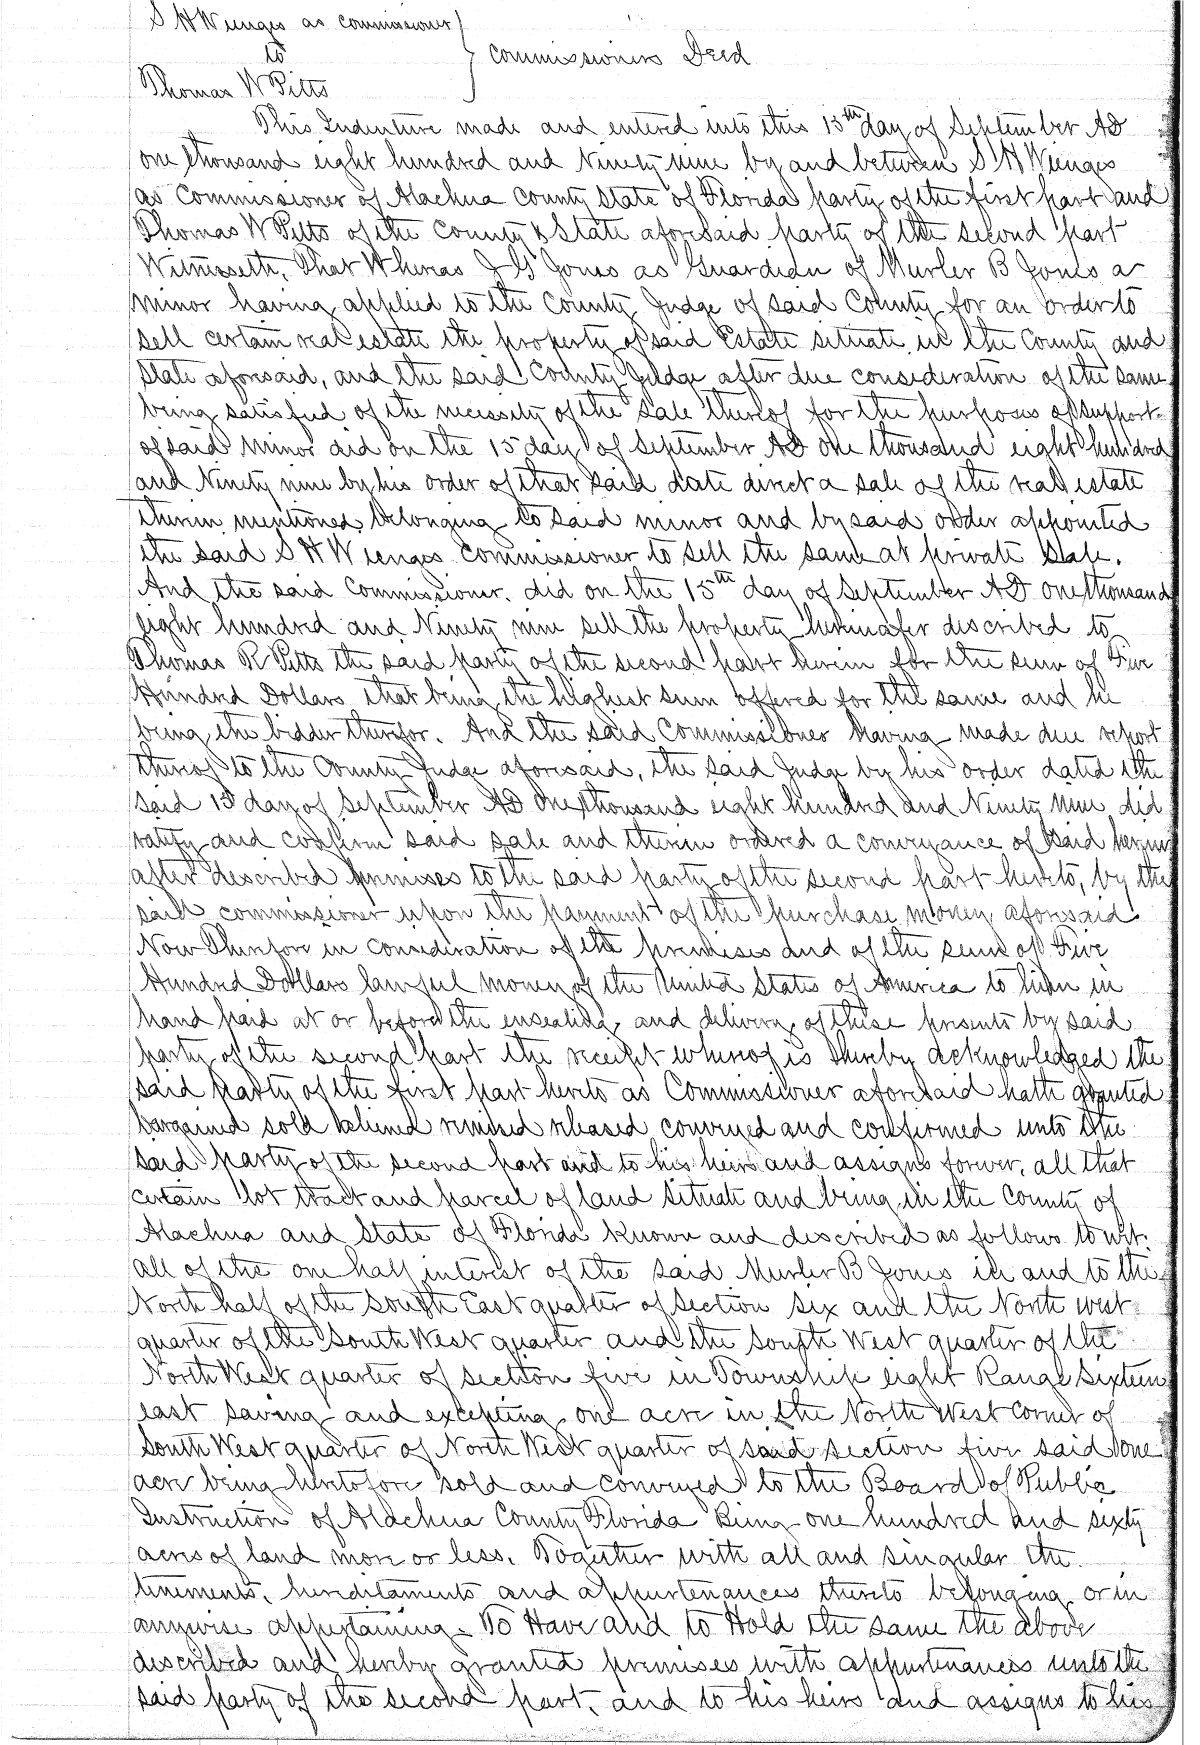 S H Wienges as commissioner
to
Commissioners Deed
Thomas W Pitts
This Indenture made and entered into this 15th day of September AD
one thousand eight hundred and Ninety nine by and between S H Wienges
as Commissioner of Alachua County State of Florida party of the first part and
Thomas W Pitts of the County & State aforesaid party of the second part
Witnesseth, That Whereas J G Jones as Guardian of Murler B Jones a
minor having applied to the County Judge of said County for an order to
sell certain real estate the property of said Estate situate in the County and
State aforesaid, and the said County Judge after due consideration of the same
being satisfied of the necessity of the sale thereof for the purposes of support
of said minor did on the 15 day of September AD one thousand eight hundred
and Ninety nine by his order of that said date direct a sale of the real estate
therein mentioned belonging to said minor and by said order appointed
the said S H Wienges commissioner to sell the same at private sale.
And the said commissioner. did on the 15th day of September AD one thousand
eight hundred and Ninety nine sell the property hereinafer described to
Thomas R Pitts the said party of the second part herein for the sum of Five
Hundred Dollars that being the highest sum offered for the same and he
being the bidder therefor. And the said Commissioner having made due report
thereof to the County Judge aforesaid, the said Judge by his order dated the
said 15 day of September AD one thousand eight hundred and Ninety Nine did
ratify and confirm said sale and therein ordered a conveyance of said herein
after described premises to the said party of the second part hereto, by the
said commissioner upon the payment of the purchase money aforesaid
Now Therefore in consideration of the premises and of the sum of Five
Hundred Dollars lawful money of the United States of America to him in
hand paid at or before the ensealing and delivery of these presents by said
party of the second part the receipt whereof is hereby acknowledged the
said party of the first part hereto as Commissioner aforesaid hath granted
bargained sold aliened remised released conveyed and confirmed unto the
said party of the second part and to his heirs and assigns forever, all that
certain lot tract and parcel of land situate and being in the County of
Alachua and State of Florida known and described as follows to wit:
all of the one half interest of the said Murler B Jones in and to the
North half of the South East quarter of section six and the North west
quarter of the South West quarter and the South West quarter of the
North West quarter of section five in Township eight Range Sixteen
east saving and excepting one acre in the North West corner of
South West quarter of North West quarter of said section five said one
acre being heretofore sold and conveyed to the Board of Public
Instruction of Alachua County Florida Being one hundred and sixty
acres of land more or less. Together with all and singular the
tenements, hereditaments and appurtenances thereto belonging or in
anywise appertaining. To Have and to Hold the same the above
described and hereby granted premises with appurtenances unto the
said party of the second part, and to his heirs and assigns to his